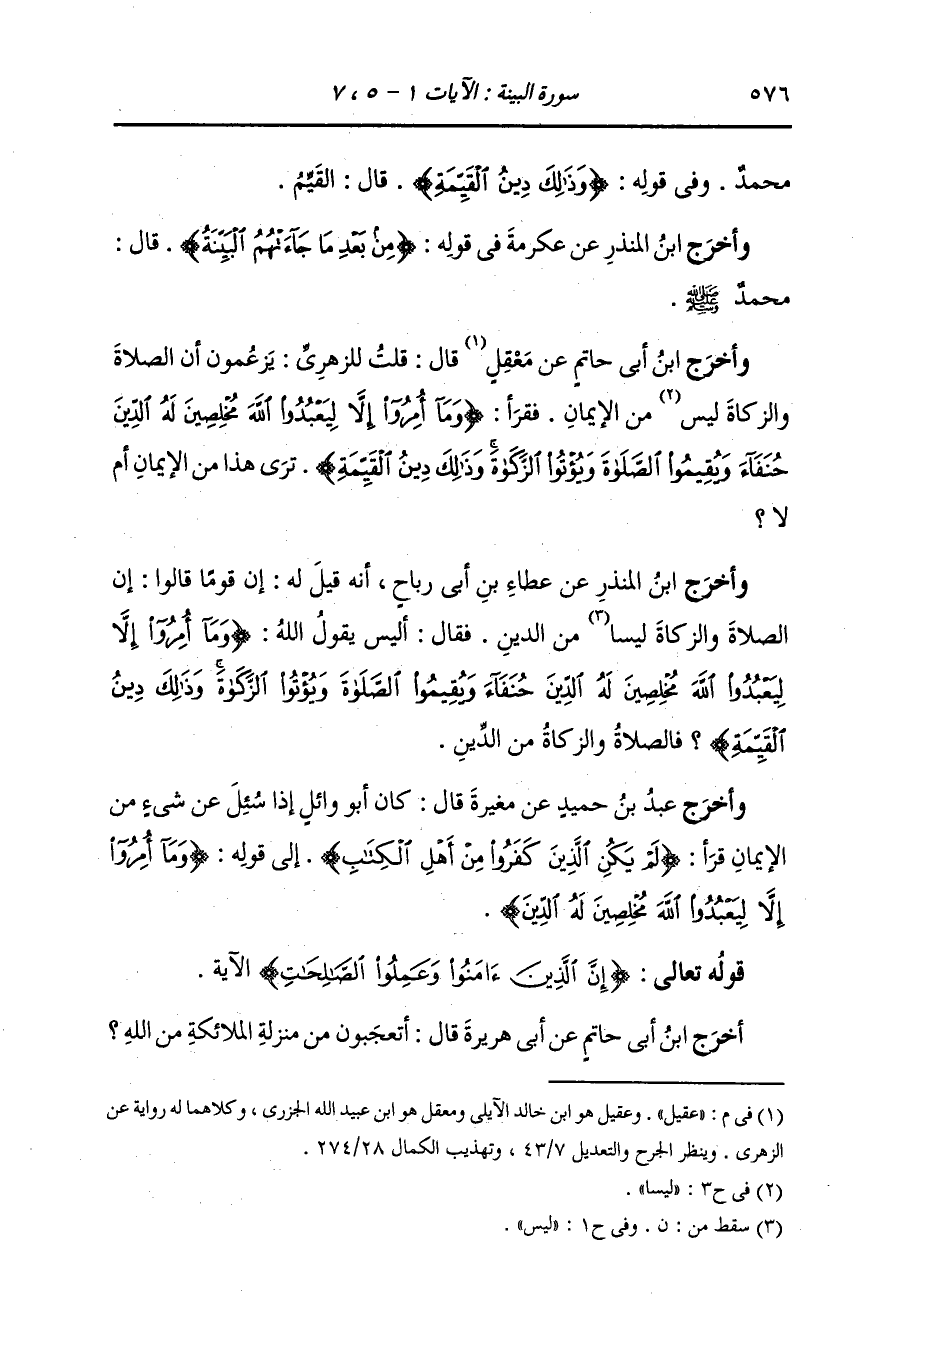 ٥٧٦ سورة البينة : الآيات ١ - ٥ ، ٧
محمدٌ . وفى قولِه : ﴿وَذَٰلِكَ دِينُ ٱلْقَيِّمَةِ﴾ . قال : القَيِّمُ .
وأخرَج ابنُ المنذرِ عن عكرمةَ فى قولِه : ﴿مِنۢ بَعْدِ مَا جَآءَتْهُمُ ٱلْبَيِّنَةُ﴾ . قال :
محمدٌ ﷺ .
وأخرَج ابنُ أبى حاتمٍ عن مَعْقِلٍ(١) قال : قلتُ للزهرىِّ : يَزعُمون أن الصلاةَ
والزكاةَ ليس(٢) من الإيمانِ . فقرَأ : ﴿وَمَآ أُمِرُوٓا۟ إِلَّا لِيَعْبُدُوا۟ ٱللَّهَ مُخْلِصِينَ لَهُ ٱلدِّينَ
حُنَفَآءَ وَيُقِيمُوا۟ ٱلصَّلَوٰةَ وَيُؤْتُوا۟ ٱلزَّكَوٰةَۚ وَذَٰلِكَ دِينُ ٱلْقَيِّمَةِ﴾ . ترَى هذا من الإيمانِ أم
لا ؟
وأخرَج ابنُ المنذرِ عن عطاءِ بنِ أبى رباحٍ ، أنه قيلَ له : إن قومًا قالوا : إن
الصلاةَ والزكاةَ ليسا(٣) من الدينِ . فقال : أليس يقولُ اللهُ : ﴿وَمَآ أُمِرُوٓا۟ إِلَّا
لِيَعْبُدُوا۟ ٱللَّهَ مُخْلِصِينَ لَهُ ٱلدِّينَ حُنَفَآءَ وَيُقِيمُوا۟ ٱلصَّلَوٰةَ وَيُؤْتُوا۟ ٱلزَّكَوٰةَۚ وَذَٰلِكَ دِينُ
ٱلْقَيِّمَةِ﴾ ؟ فالصلاةُ والزكاةُ من الدِّينِ .
وأخرَج عبدُ بنُ حميدٍ عن مغيرةَ قال : كان أبو وائلٍ إذا سُئِلَ عن شىءٍ من
الإيمانِ قرَأ : ﴿لَمْ يَكُنِ ٱلَّذِينَ كَفَرُوا۟ مِنْ أَهْلِ ٱلْكِتَٰبِ﴾ . إلى قولِه : ﴿وَمَآ أُمِرُوٓا۟
إِلَّا لِيَعْبُدُوا۟ ٱللَّهَ مُخْلِصِينَ لَهُ ٱلدِّينَ﴾ .
قولُه تعالى : ﴿إِنَّ ٱلَّذِينَ ءَامَنُوا۟ وَعَمِلُوا۟ ٱلصَّٰلِحَٰتِ﴾ الآية .
أخرَج ابنُ أبى حاتمٍ عن أبى هريرةَ قال : أتعجَبون من منزلةِ الملائكةِ من اللهِ ؟
(١) فى م : «عقيل» . وعقيل هو ابن خالد الآيلى ومعقل هو ابن عبيد الله الجزرى ، وكلاهما له رواية عن
الزهرى . وينظر الجرح والتعديل ٤٣/٧ ، وتهذيب الكمال ٢٧٤/٢٨ .
(٢) فى ح٣ : «ليسا» .
(٣) سقط من : ن . وفى ح١ : «ليس» .